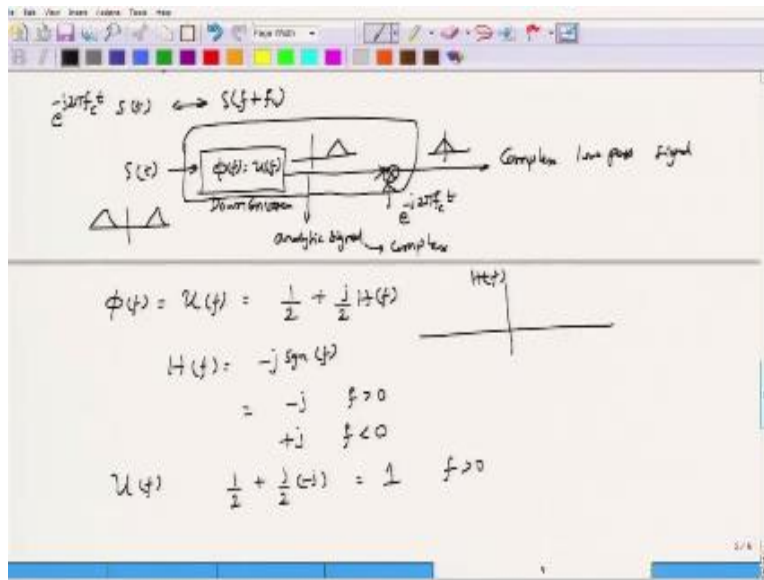 File Edit View Insert Actions Tools Help
Page Width
B I
e^{-j2πf_c t} s(t) ↔ S(f+f_c)
s(t) → φ(f) = u(f) → ⊗ → Complex low pass signal
Down Conversion
e^{-j2πf_c t}
analytic signal → complex
φ(f) = u(f) = 1/2 + j/2 H(f)
H(f)
H(f) = -j sgn(f)
= -j f>0
+j f<0
u(f) 1/2 + j/2 (-j) = 1 f>0